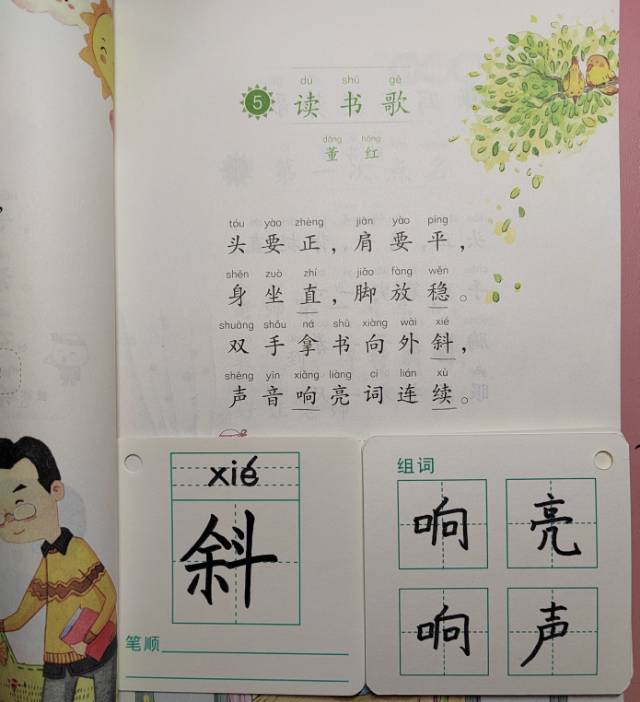 dú shū gē
5 读书歌
dǒng hóng
董红
tóu yào zhèng jiān yào píng
头要正，肩要平，
shēn zuò zhí jiǎo fàng wěn
身坐直，脚放稳。
shuāng shǒu ná shū xiàng wài xié
双手拿书向外斜，
shēng yīn xiǎng liàng cí lián xù
声音响亮词连续。
xié
斜
笔顺
组词
响亮
响声